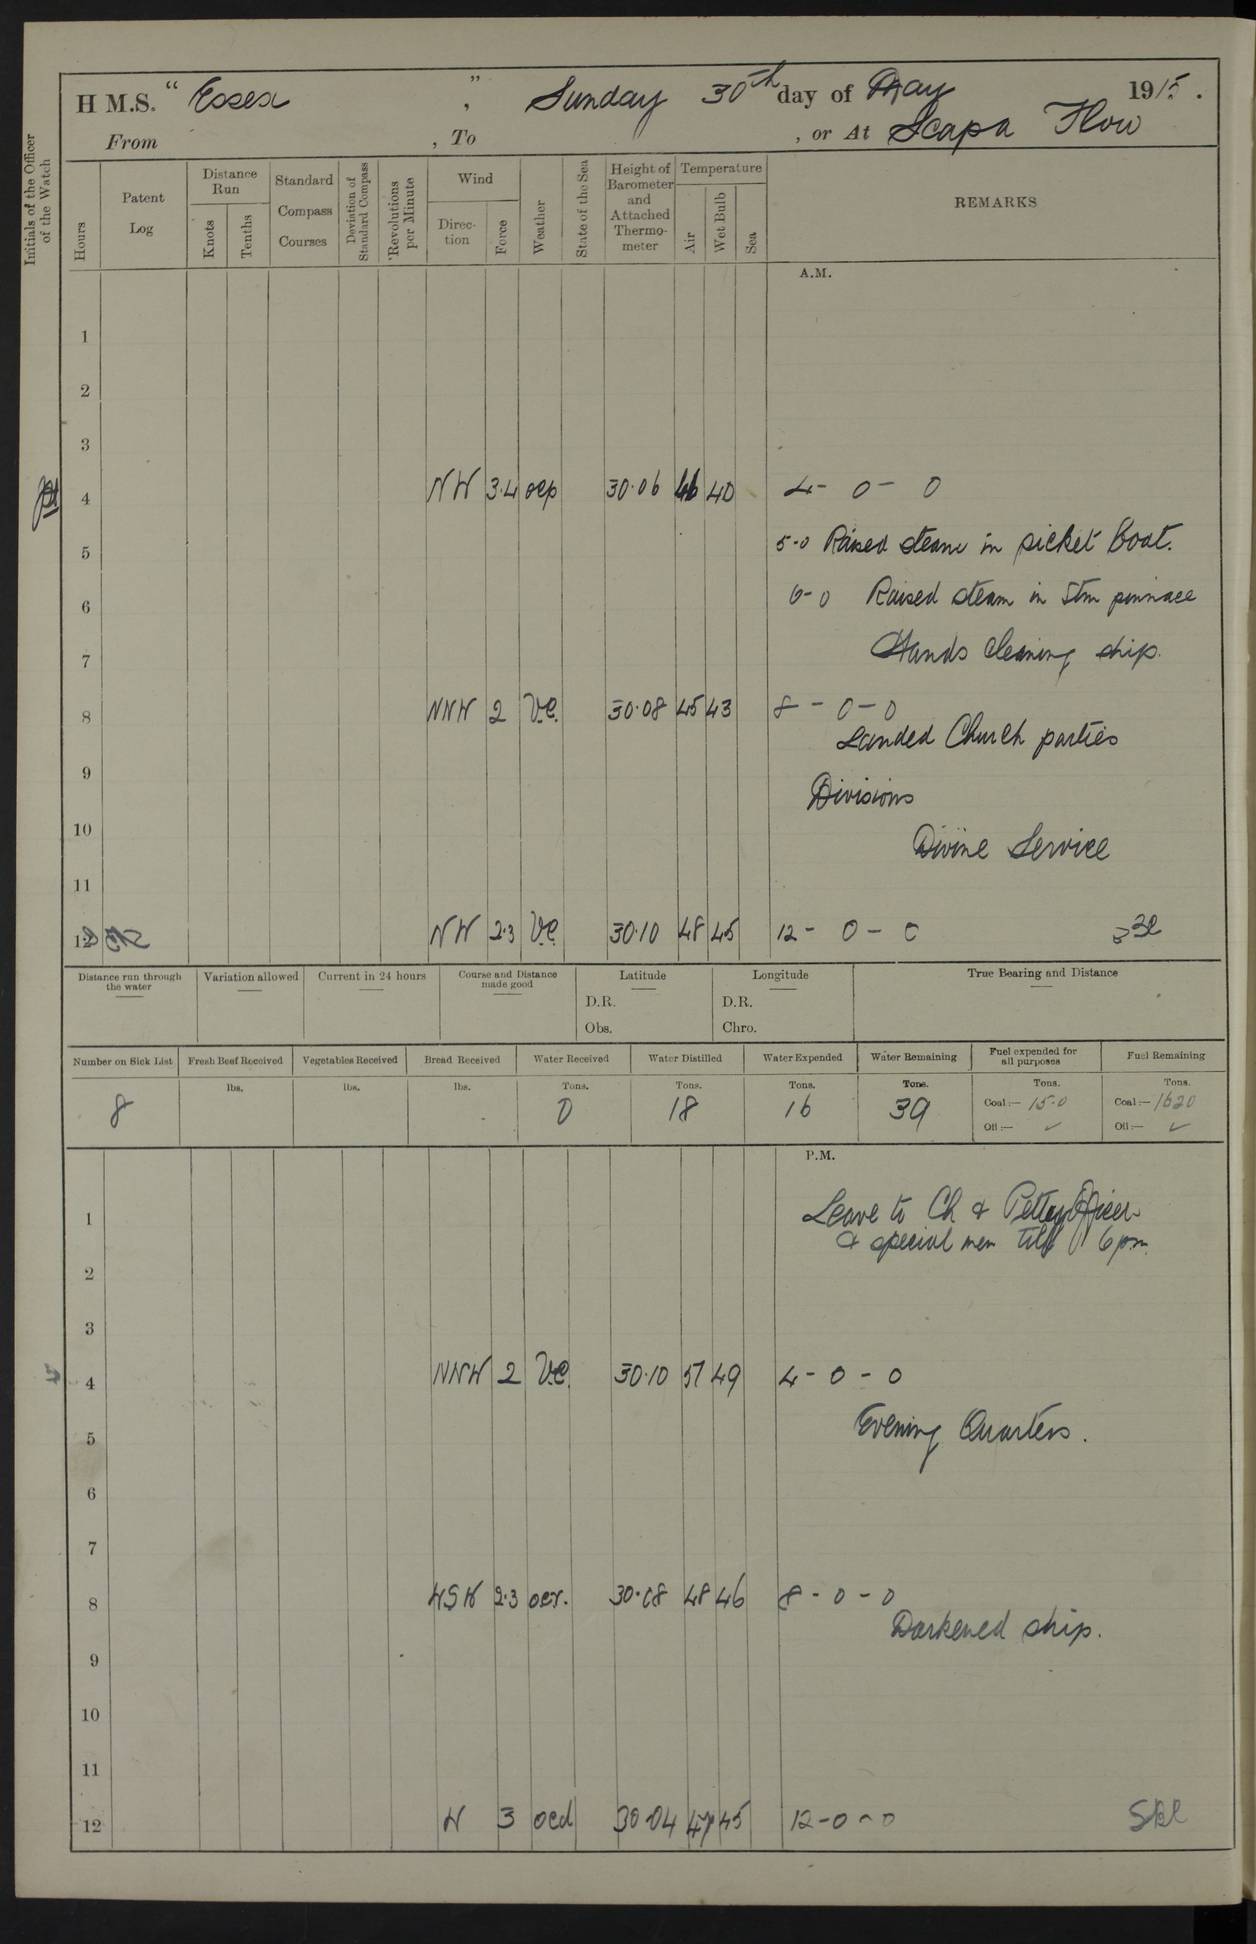 H M.S. “ Essex ” , Sunday 30th day of May 1915 .
From , To , or At Scapa Flow
Initials of the Officer of the Watch
Hours
Patent Log
Distance Run
Knots
Tenths
Standard Compass Courses
Deviation of Standard Compass
Revolutions per Minute
Wind
Direc- tion
Force
Weather
State of the Sea
Height of Barometer and Attached Thermo- meter
Temperature
Air
Wet Bulb
Sea
REMARKS
A.M.
1
2
3
4 NW 3.4 ocp 30.06 46 40 4 - 0 - 0
5 5-0 Raised steam in picket boat.
6 6-0 Raised steam in Stm pinnace
7 Hands cleaning ship.
8 NNW 2 b.c. 30.08 45 43 8 - 0 - 0
Landed Church parties
9 Divisions
10 Divine Service
11
12 NW 2.3 b.c. 30.10 48 45 12 - 0 - 0
Distance run through the water
Variation allowed
Current in 24 hours
Course and Distance made good
Latitude
D.R.
Obs.
Longitude
D.R.
Chro.
True Bearing and Distance
Number on Sick List
8
Fresh Beef Received
lbs.
Vegetables Received
lbs.
Bread Received
lbs.
Water Received
Tons.
0
Water Distilled
Tons.
18
Water Expended
Tons.
16
Water Remaining
Tons.
39
Fuel expended for all purposes
Tons.
Coal :— 15.0
Oil :— ✓
Fuel Remaining
Tons.
Coal :— 1620
Oil :— ✓
P.M.
1 Leave to Ch & Petty Officer
& special men till 6 pm.
2
3
4 NNW 2 b.c. 30.10 51 49 4 - 0 - 0
5 Evening Quarters.
6
7
8 WSW 2.3 ocr. 30.08 48 46 8 - 0 - 0
Darkened ship.
9
10
11
12 W 3 ocd 30.04 47 45 12 - 0 - 0